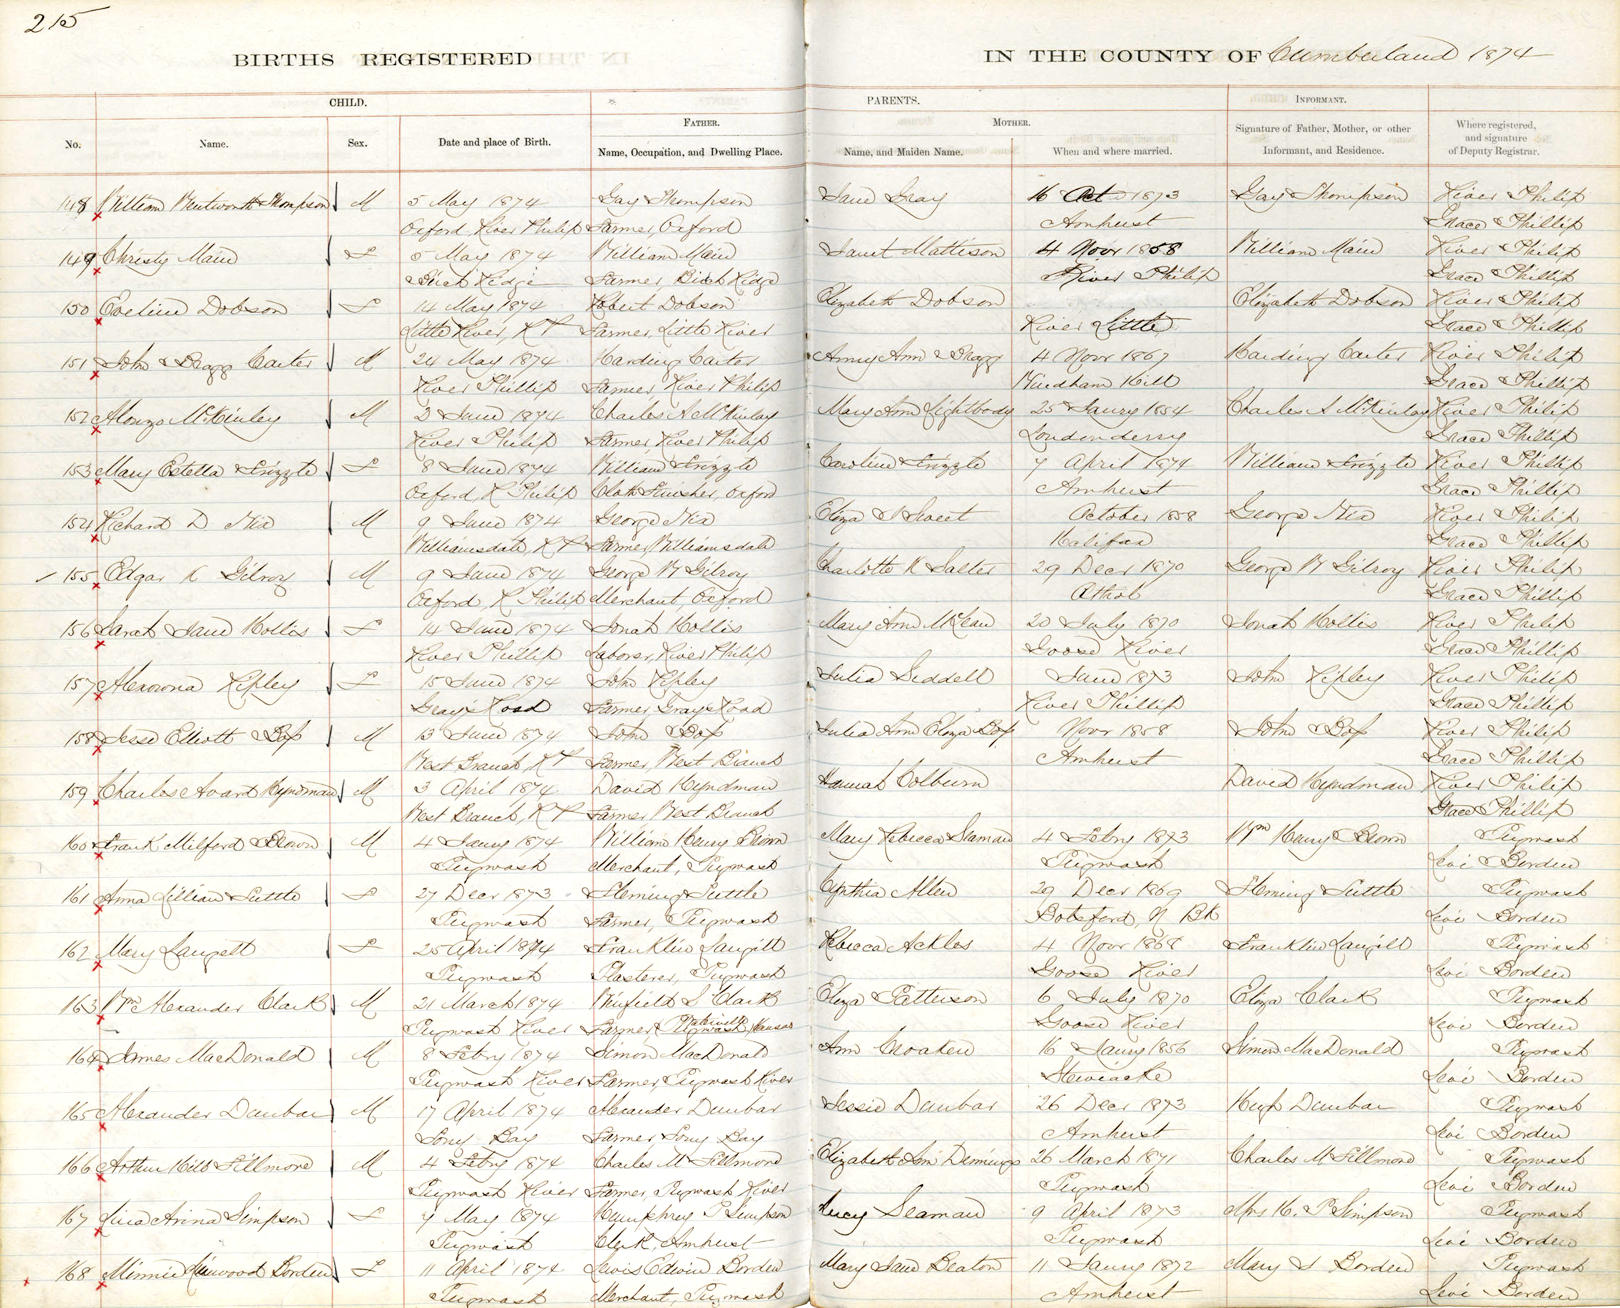 215
BIRTHS REGISTERED
IN THE COUNTY OF Cumberland 1874
CHILD.
PARENTS.
INFORMANT.
FATHER.
MOTHER.
No.
Name.
Sex.
Date and place of Birth.
Name, Occupation, and Dwelling Place.
Name, and Maiden Name.
When and where married.
Signature of Father, Mother, or other
Informant, and Residence.
Where registered,
and signature
of Deputy Registrar.
148 William Wentworth Thompson M 5 May 1874 Gay Thompson Jane Gray 16 Oct 1873 Gay Thompson River Philip
Oxford, River Philip Farmer, Oxford Amherst Grace Phillip
149 Christy Main F 5 May 1874 William Main Janet Mattison 4 Novr 1858 William Main River Philip
Birch Ridge Farmer Birch Ridge River Philip Grace Phillip
150 Eveline Dobson F 14 May 1874 Robert Dobson Elizabeth Dobson Elizabeth Dobson River Philip
Little River, R P Farmer, Little River River Little Grace Phillip
151 John Bragg Carter M 24 May 1874 Harding Carter Ann Bragg 4 Novr 1867 Harding Carter River Philip
River Phillip Farmer River Philip Windham Hill Grace Phillip
152 Alonzo McKinley M 2 June 1874 Charles A McKinlay Mary Ann Lightbody 25 Jany 1854 Charles A McKinlay River Philip
River Philip Farmer River Philip Londonderry Grace Phillip
153 Mary Estella Frizzle F 8 June 1874 William Frizzle Caroline Frizzle 7 April 1874 William Frizzle River Philip
Oxford, R Philip Cloth Finisher, Oxford Amherst Grace Phillip
154 Richard D Nix M 9 June 1874 George Nix Eliza Sweet October 1858 George Nix River Philip
Williamsdale, R P Farmer, Williamsdale Halifax Grace Phillip
155 Edgar R Gilroy M 9 June 1874 George W Gilroy Charlotte R Salter 29 Decr 1870 George W Gilroy River Philip
Oxford, R Philip Merchant, Oxford Athol Grace Phillip
156 Sarah Jane Hollis F 14 June 1874 Jonah Hollis Mary Ann McLean 20 July 1870 Jonah Hollis River Philip
River Phillip Laborer, River Philip Goose River Grace Phillip
157 Ripley F 15 June 1874 John Ripley Julia Siddell June 1873 John Ripley River Philip
Grays Road Farmer, Grays Road River Phillip Grace Phillip
158 Jesse Elliott M 13 June 1874 John Julia Ann Eliza Novr 1858 John River Philip
West Branch R P Farmer, West Branch Amherst Grace Phillip
159 Charles Avard Hyndman M 3 April 1874 David Hyndman Hannah Colburn David Hyndman River Philip
West Branch, R P Farmer West Branch Grace Phillip
160 Frank Milford Brown M 4 Jany 1874 William Henry Brown Mary Rebecca Seaman 4 Febry 1873 Wm Henry Brown Pugwash
Pugwash Merchant, Pugwash Pugwash Levi Borden
161 Anna Lillian Tuttle F 27 Decr 1873 Fleming Tuttle Cynthia Allen 29 Decr 1869 Fleming Tuttle Pugwash
Pugwash Farmer, Pugwash Botsford, N Bk Levi Borden
162 Mary Langill F 25 April 1874 Franklin Langill Rebecca Ackles 4 Novr 1868 Franklin Langill Pugwash
Pugwash Plasterer, Pugwash Goose River Levi Borden
163 Wm Alexander Clark M 21 March 1874 Winfield S Clark Eliza Patterson 6 July 1870 Eliza Clark Pugwash
Pugwash River Farmer Waterville Kansas Goose River Levi Borden
164 James MacDonald M 8 Febry 1874 Simon MacDonald Ann Croaken 16 Jany 1856 Simon MacDonald Pugwash
Pugwash River Farmer, Pugwash River Stewiacke Levi Borden
165 Alexander Dunbar M 17 April 1874 Alexander Dunbar Jessie Dunbar 26 Decr 1873 Hugh Dunbar Pugwash
Bay Farmer Bay Amherst Levi Borden
166 Arthur Hill Fillmore M 4 Febry 1874 Charles M Fillmore Elizabeth Ann Demings 26 March 1871 Charles M Fillmore Pugwash
Pugwash River Farmer Pugwash River Pugwash Levi Borden
167 Simpson F 7 May 1874 Humphrey P Simpson Lucy Seaman 9 April 1873 Mrs H. P Simpson Pugwash
Pugwash Clerk, Amherst Pugwash Levi Borden
168 Minnie Borden F 11 April 1874 Lewis Edwin Borden Mary Jane Beaton 11 Jany 1872 Mary J Borden Pugwash
Pugwash Merchant, Pugwash Amherst Levi Borden